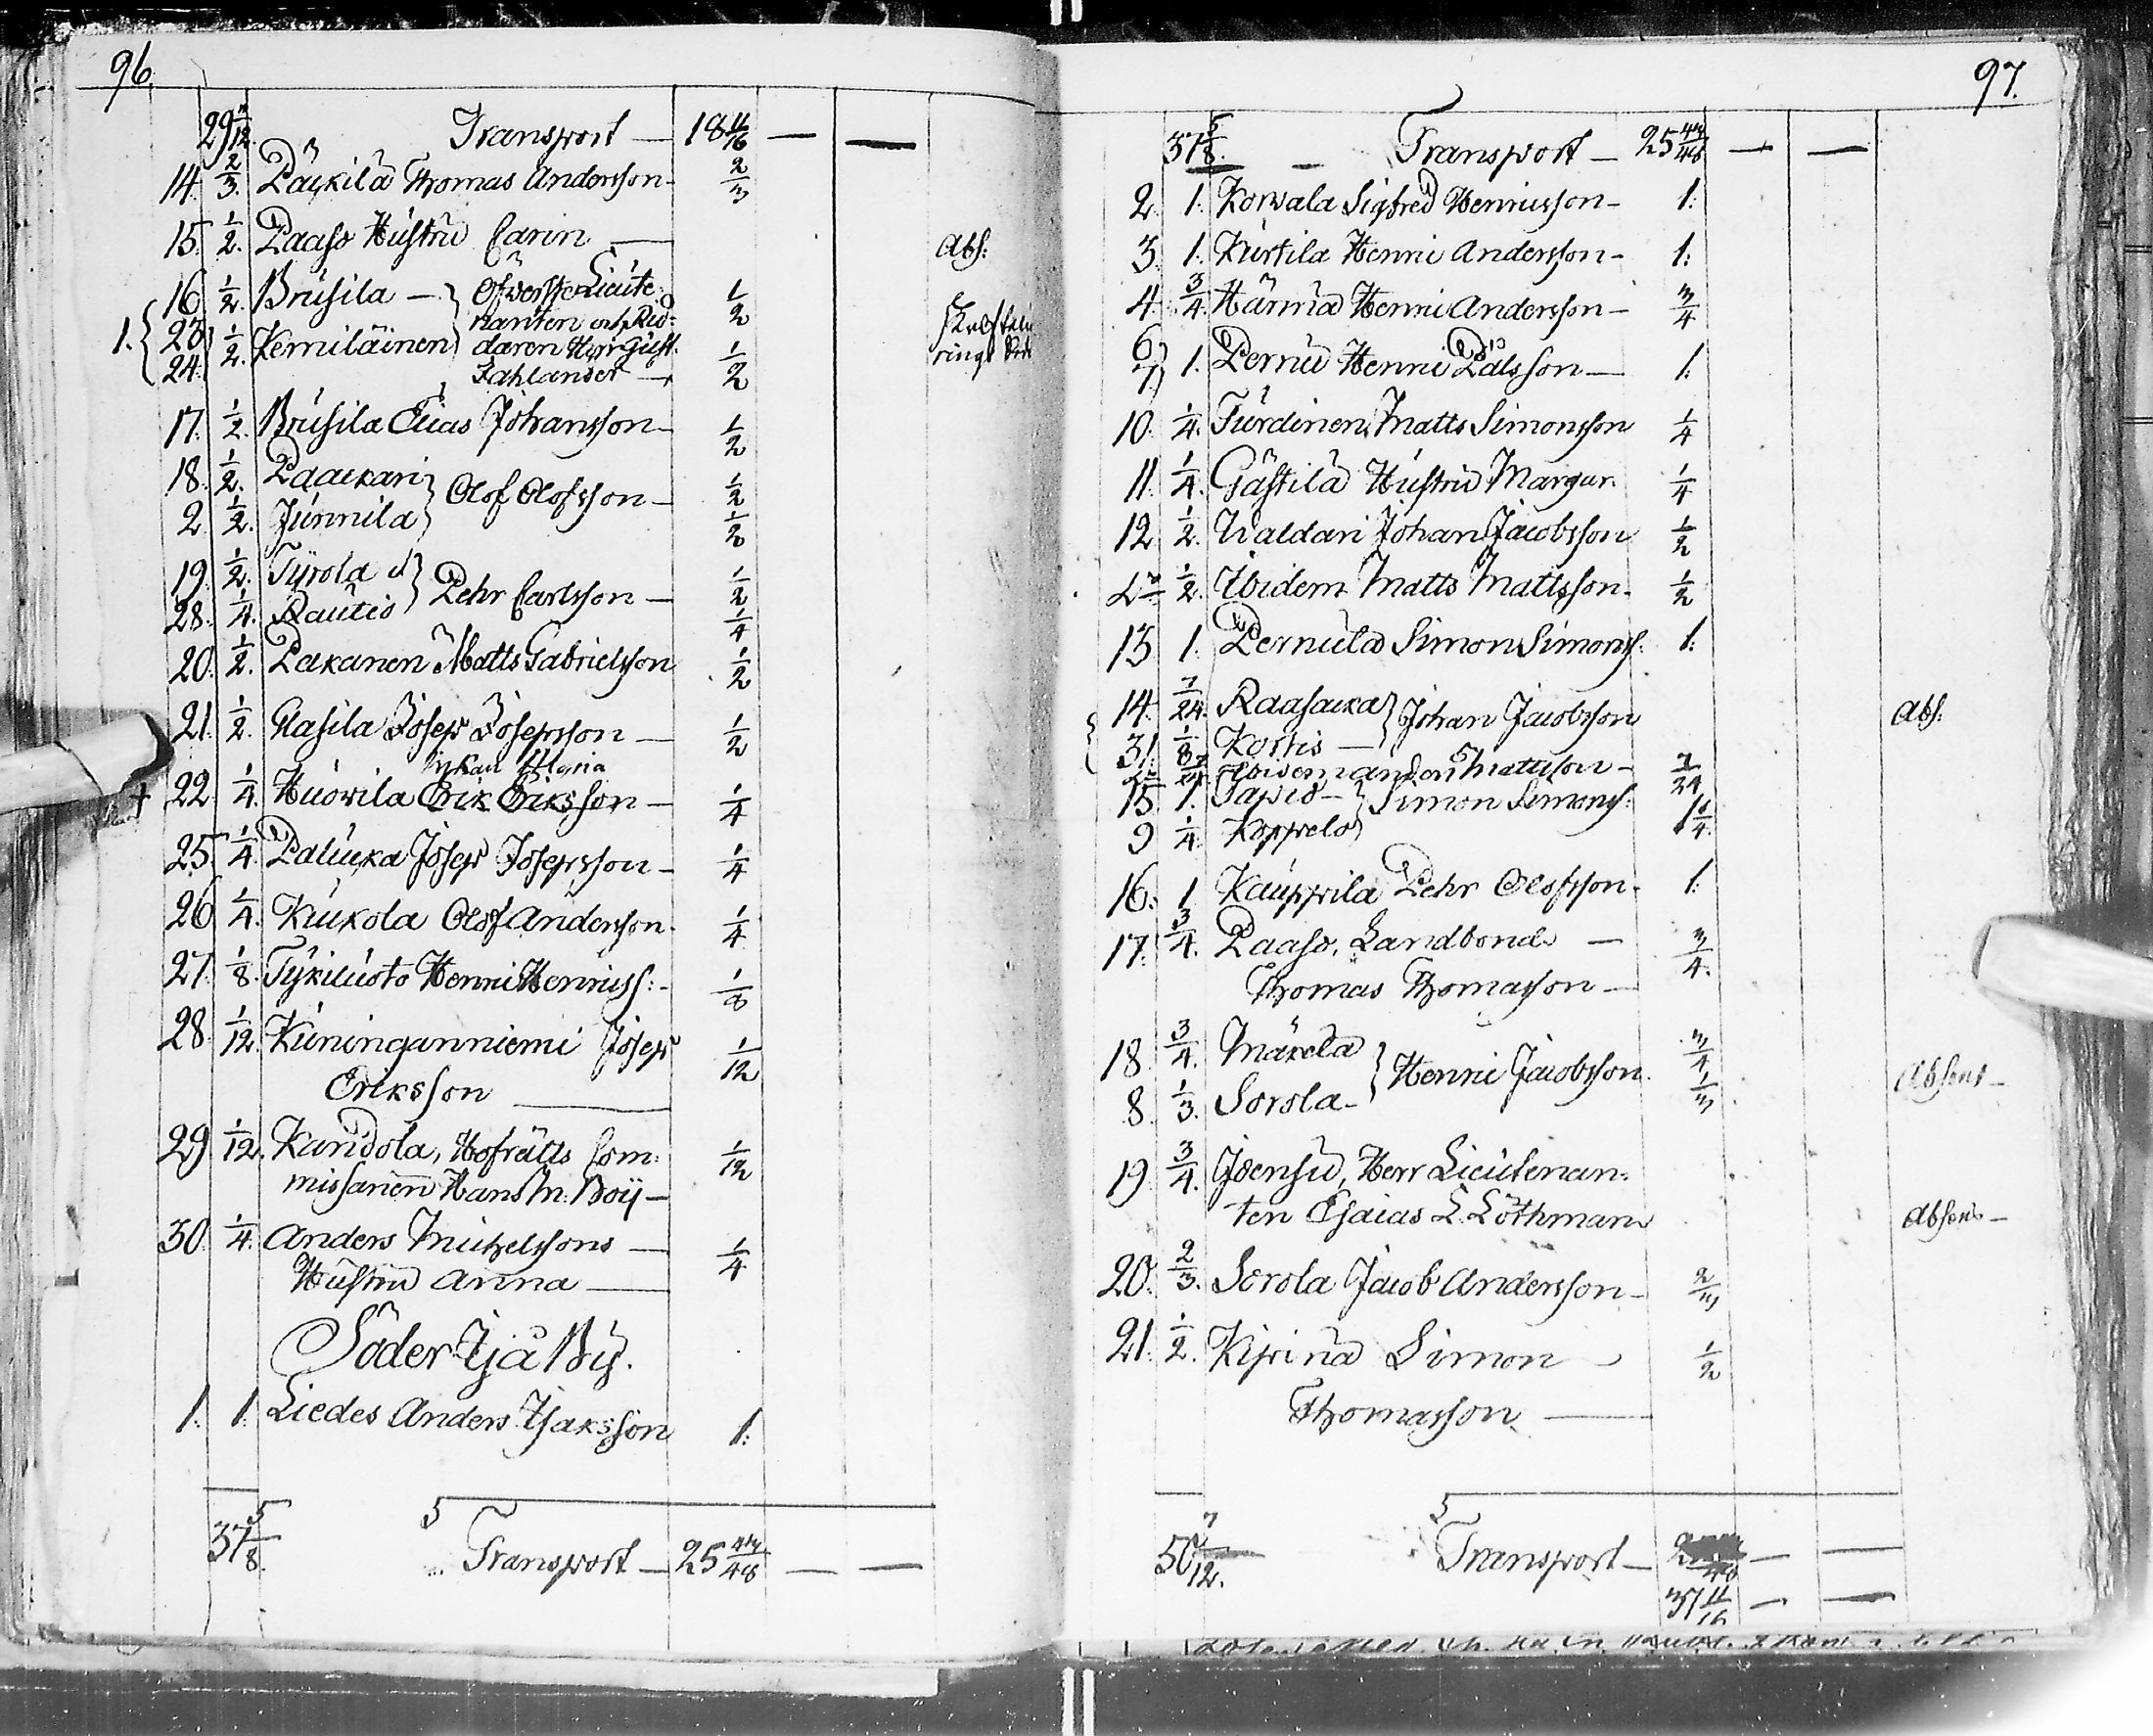 96.
29 7/12. Transport — 18 11/16 — —
14. 2/3. Päckilä Thomas Andersson - 2/3
15. 1/2. Paaso Hustru Carin — Abs:
16. 1/2. Brusila — } Öfwerste Lieute- 1/2
1. { 23. 24. } 1/2. Kemiläinen } nanten och Rid-
daren Herr Gust. 1/2
Fahlander —
17. 1/2. Brusila Elias Johansson - 1/2
18. 1/2. Paackari } Olof Olofsson - 1/2
2 1/2. Junnila } 1/2
19. 1/2. Tyrola } Pehr Carlsson — 1/2
28. 1/4. Rautio } 1/4
20. 1/2. Pakanen Matts Gabrielsson 1/2
21. 1/2. Rasila Josep Josepsson — 1/2
Maria
22 1/4. Huowila Erik Eriksson — 1/4
25. 1/4. Palucka Josep Josepsson - 1/4
26 1/4. Kiukola Olof Andersson. 1/4
27. 1/8. Tykiluoto Henric Henricss: - 1/8
28. 1/12. Kuninganniemi Josep 1/12
Eriksson —
29 1/12. Kandola, Hofrätts Com- 1/12
missarien Hans M. Boij —
30. 1/4. Anders Michelssons — 1/4
Hustru Anna —
Söder Ijå By.
1. 1. Liedes Anders Isaksson 1.
37 5/8. Transport — 25 44/48 — —
97.
37 5/8. Transport — 25 44/48 — —
2. 1. Korwala Sigfred Henricsson - 1.
3. 1. Kurtila Henric Andersson - 1.
4. 3/4. Härmä Henric Andersson - 3/4
6 7 } 1. Pernu Henric Pålsson — 1.
10. 1/4. Turdinen Matts Simonsson 1/4
11. 1/4. Gästilä Hustru Margar. 1/4
12 1/2. Waldari Johan Jacobsson 1/2
1/2. Ibidem Matts Mattsson. 1/2
13 1. Pernula Simon Simonss: 1.
14. 7/24. Raasacka } Johan Jacobsson Abs:
31. 1/8 Kortis — }
7/24 Ibidem Anders Mattsson — 7/24
15. 1. Tapio — } Simon Simonss: 1 1/4.
9 1/4. Koppelo }
16. 1 Kauppila Pehr Olofsson. 1.
17. 3/4. Paaso, Landbonde — 3/4.
Thomas Thomasson —
18. 3/4. Mäkelä } Henric Jacobsson. 3/4
8. 1/3. Sorola - } 1/3 Absens —
19. 3/4. Joensu, Herr Lieutenan-
ten Esaias L. Löthman Absens —
20. 2/3. Sorola Jacob Andersson - 2/3
21. 1/2. Kipinä Simon 1/2
Thomasson —
50 7/12. Transport — — —
37 11/16 — —